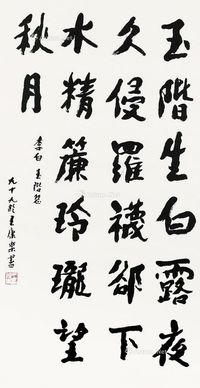 玉階生白露夜
久侵羅襪卻下
水精簾玲瓏望
秋月
李白玉階怨
九十九於王康樂書